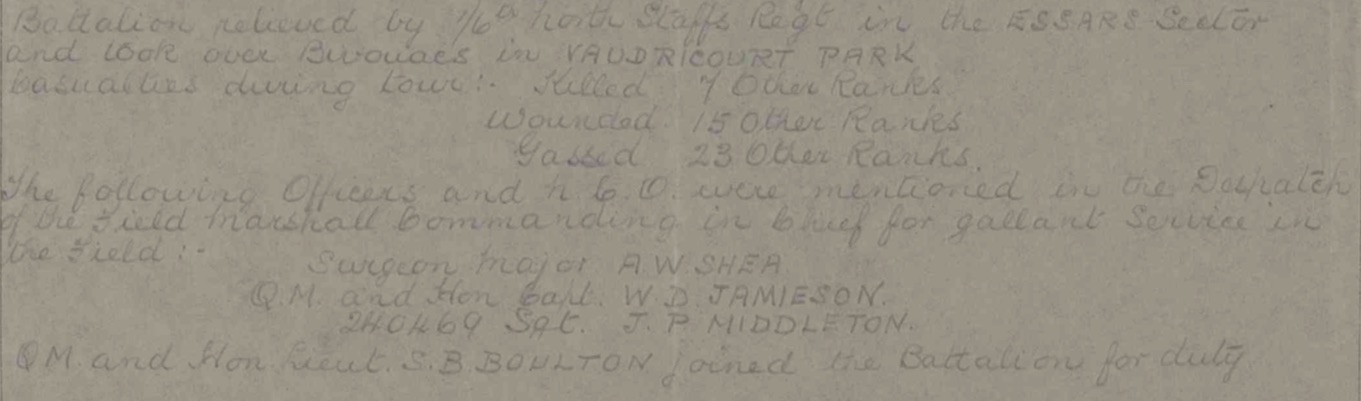 Battalion relieved by 1/6th North Staffs Regt in the ESSARS Sector
and took over Bivouacs in VAUDRICOURT PARK
Casualties during tour:- Killed 7 Other Ranks
Wounded. 15 Other Ranks
Gassed 23 Other Ranks.
The following Officers and N.C.O. were mentioned in the Despatch
of the Field Marshall Commanding in Chief for gallant Service in
the Field:-
Surgeon Major A.W. SHEA
Q.M. and Hon Capt. W.D. JAMIESON.
240469 Sgt. J.P. MIDDLETON.
QM. and Hon Lieut. S.B. BOULTON joined the Battalion for duty